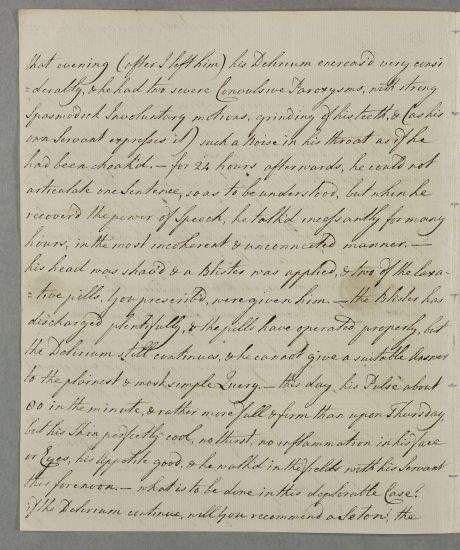 that evening (after I left him) his Delirium encreas'd very consi
=derably, & he had two severe Convulsive Paroxysms, with strong
Spasmodick Involuntary motions, grinding of his teeth, & (as his
own Servant expresses it) such a Noise in his throat as if he
had been choak'd. — for 24 hours afterwards, he could not
articulate one Sentence, so as to be understood, but when he
recover'd the power of Speech, he talk'd incessantly for many
hours, in the most incoherent & unconnected manner. —
his head was shav'd & a Blister was applied, & two of the laxa-
=tive pills, You prescrib'd, were given him. — the Blister has
discharged plentifully, & the pills have operated properly, but
the Delirium still continues, & he cannot give a suitable Answer
to the plainest & most simple Query. — this day his Pulse about
80 in the minute, & rather more full & firm than upon Thursday
but his Skin perfectly cool, no thirst, no inflammation in his face
or Eyes, his Appetite good, & he walk'd in the fields with his Servant
this forenoon. — what is to be done in this deplorable Case?
if the Delirium continue, will You recommend a Seton, the